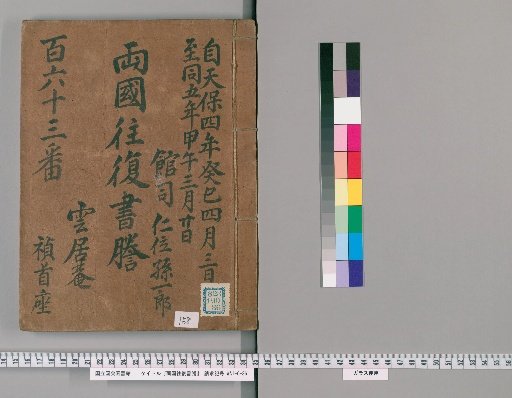 自天保四年癸巳四月三日
至同五年甲午三月廿日
館司 仁位孫一郎
両國往復書謄
雲居菴
禎首座
百六十三番